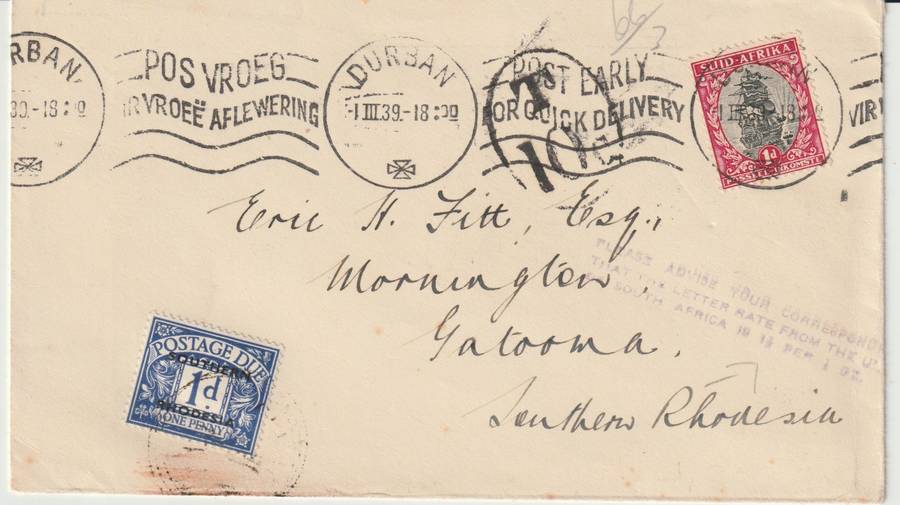 DURBAN
-1 III.39.-18:00
POS VROEG
VIR VROEË AFLEWERING
POST EARLY
FOR QUICK DELIVERY
T
10c
66/3
SUID-AFRIKA
1d
POSSEËL-INKOMSTE
RBAN
39.-18:00
VIR
Eric H. Fitt, Esq.,
Mornington,
Gatooma,
Southern Rhodesia
PLEASE ADVISE YOUR CORRESPONDENT
THAT THE LETTER RATE FROM THE U.
OF SOUTH AFRICA IS 1½ PER 1 OZ.
POSTAGE DUE
SOUTHERN
1d
RHODESIA
ONE PENNY